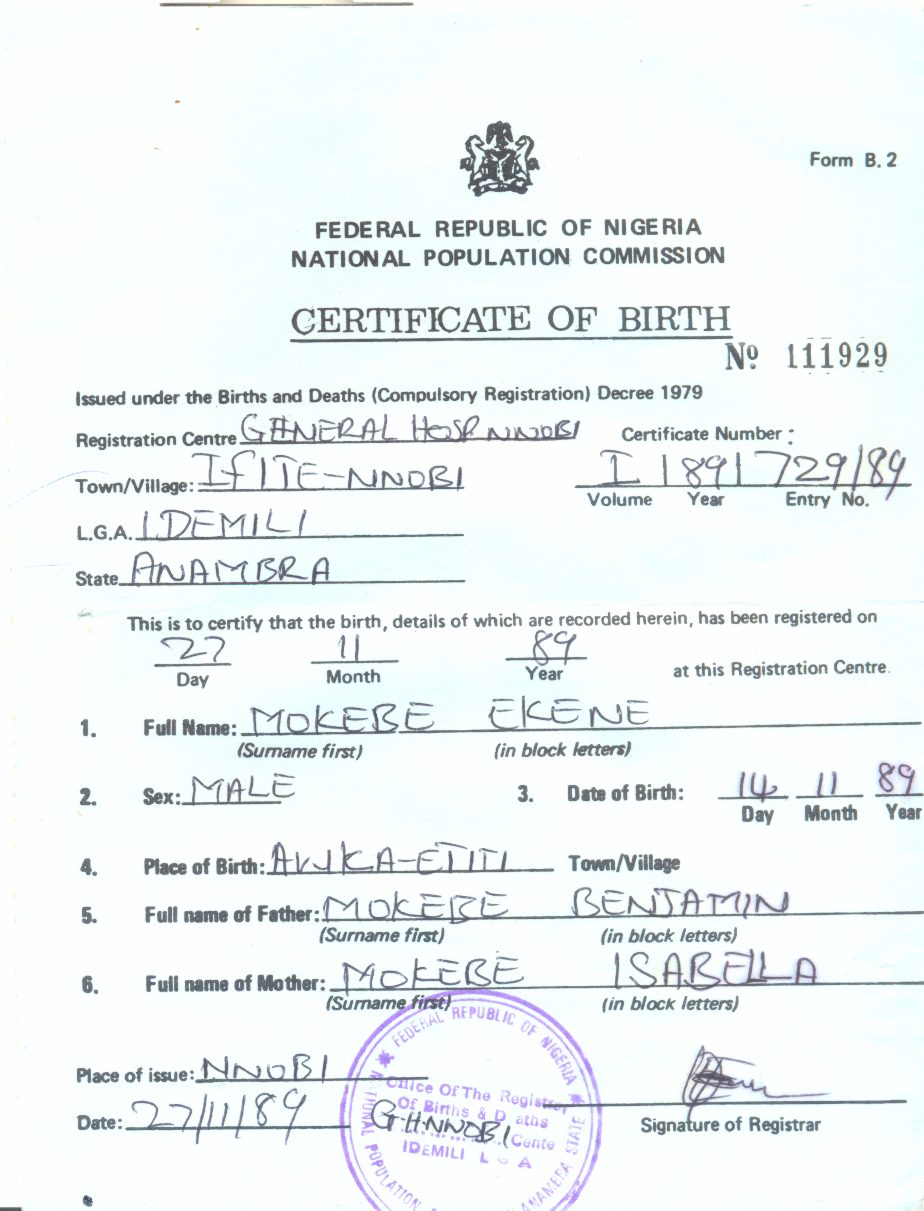 Form B. 2
FEDERAL REPUBLIC OF NIGERIA
NATIONAL POPULATION COMMISSION
CERTIFICATE OF BIRTH
Nº 111929
Issued under the Births and Deaths (Compulsory Registration) Decree 1979
Registration Centre GENERAL HOSP NNOBI Certificate Number :
Town/Village: IFITE-NNOBI I / 89 / 729/89
Volume Year Entry No.
L.G.A. IDEMILI
State ANAMBRA
This is to certify that the birth, details of which are recorded herein, has been registered on
27 11 89
Day Month Year at this Registration Centre.
1. Full Name: MOKEBE EKENE
(Surname first) (in block letters)
2. Sex: MALE 3. Date of Birth: 14 11 89
Day Month Year
4. Place of Birth: AWKA-ETITI Town/Village
5. Full name of Father: MOKEBE BENJAMIN
(Surname first) (in block letters)
6. Full name of Mother: MOKEBE ISABELLA
(Surname first) (in block letters)
FEDERAL REPUBLIC OF NIGERIA
NATIONAL POPULATION
ANAMBRA STATE
Place of issue: NNOBI
Office Of The Registrar
Of Births & D aths
Date: 27/11/89 G.H NNOBI Cente
IDEMILI L G A
Signature of Registrar